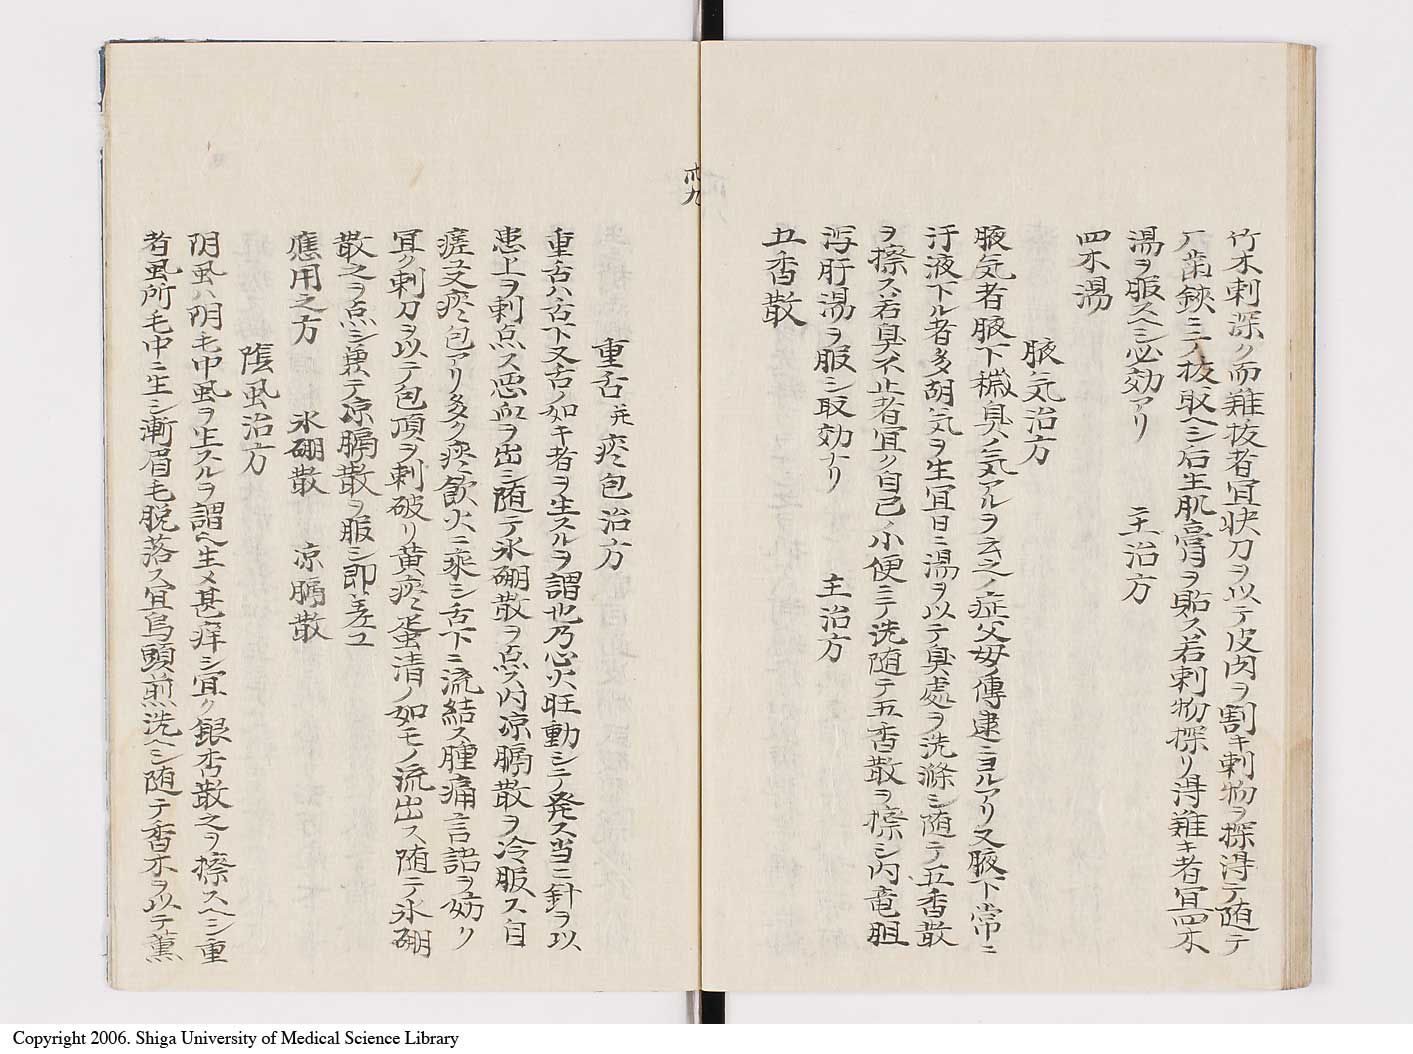 竹木刺深ク而難抜者宜快刀ヲ以テ皮肉ヲ割キ刺物ヲ探得テ随テ
厂歯鋏ニノ抜取ヘシ后生肌膏ヲ貼ス若刺物探リ得難キ者宜四木
湯ヲ服スヘシ必効アリ　主治方
四木湯
腋気治方
腋気者腋下穢臭ノ気アルヲ云之ノ症父母ノ傳逮ニヨルアリ又腋下常ニ
汗液下ル者多胡気ヲ生宜日ニ湯ヲ以テ臭處ヲ洗滌シ随テ五香散
ヲ擦ス若臭ノ不止者宜ク自己ノ小便ニテ洗随テ五香散ヲ擦シ内竜胆
泻肝湯ヲ服シ取効ナリ　主治方
五香散
卅九
重舌并痰包治方
重舌ハ舌下又舌ノ如キ者ヲ生スルヲ謂也乃心火旺動シテ発ス当ニ針ヲ以
患上ヲ刺点ス悪血ヲ出シ随テ氷硼散ヲ点ス内凉膈散ヲ冷服ス自
瘥又痰包アリ多ク痰飲火ニ乘シ舌下ニ流結ス腫痛言語ヲ妨ク
宜ク刺刀ヲ以テ包頂ヲ刺破リ黄痰蛋清ノ如モノ流出ス随テ氷硼
散之ヲ点シ兼テ凉膈散ヲ服シ即差ユ
應用之方　氷硼散　凉膈散
陰風治方
阴風ハ阴毛中風ヲ生スルヲ謂ヘ生メ甚痒シ宜ク銀杏散之ヲ擦スヘシ重
者風所毛中ニ生シ漸眉毛脱落ス宜烏頭煎洗ヘシ随テ香木ヲ以テ薰
Copyright 2006. Shiga University of Medical Science Library